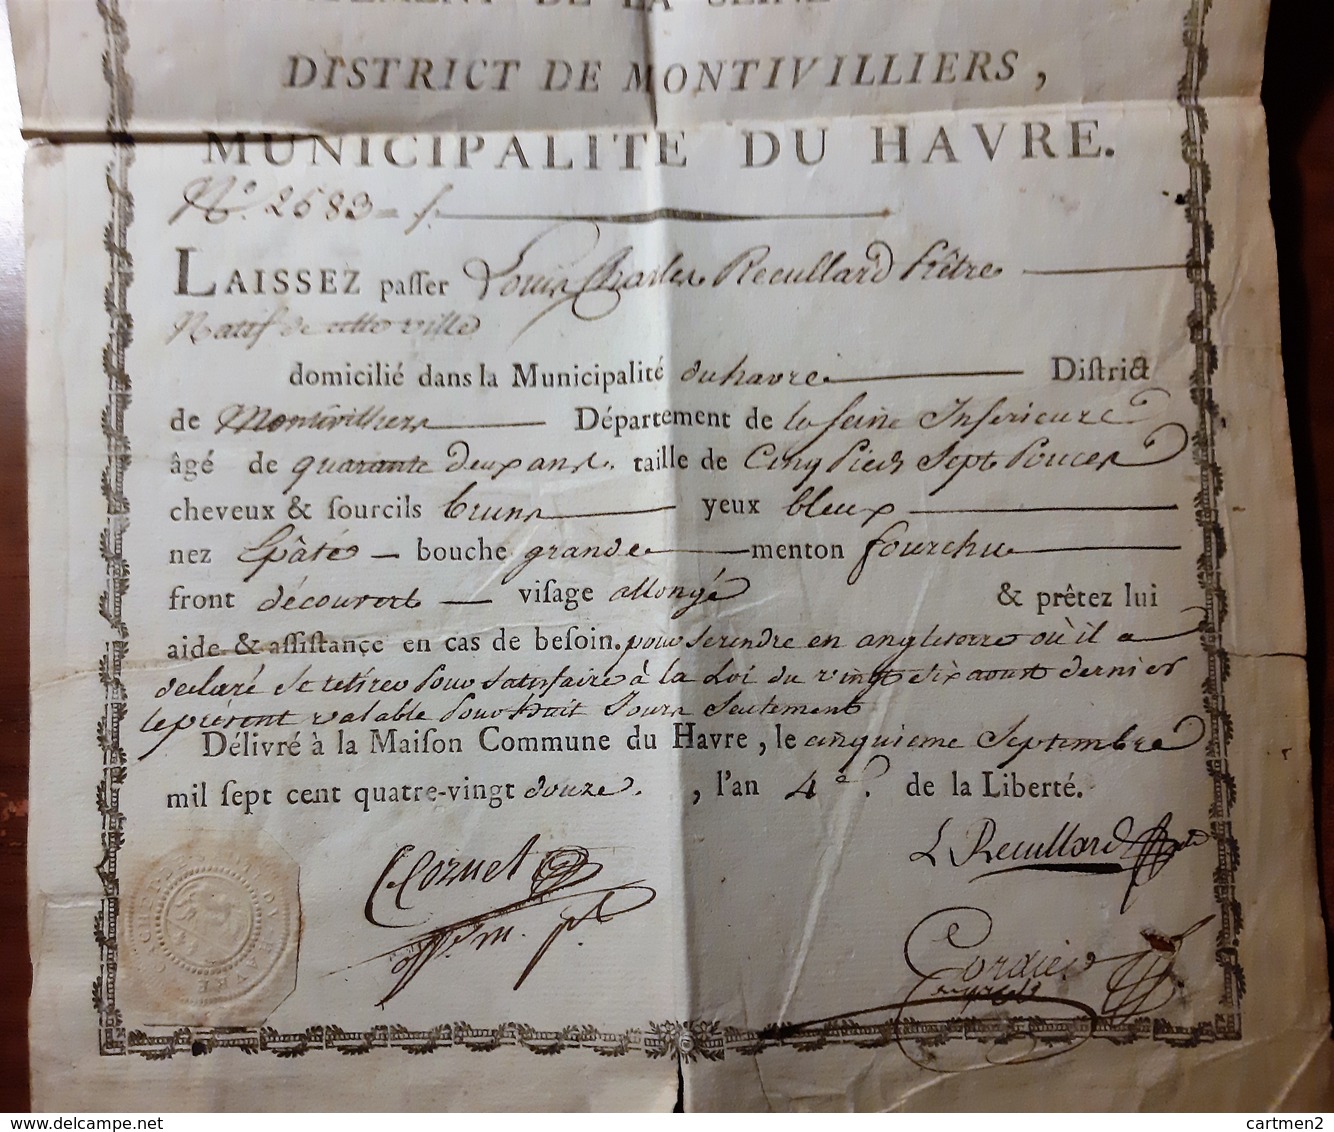 DE LA SEINE
DISTRICT DE MONTIVILLIERS,
MUNICIPALITÉ DU HAVRE.
N.° 2683
LAISSEZ paſſer Louis Charles Recullard Prêtre
Natif de cette ville
domicilié dans la Municipalité du havre District
de Montivilliers Département de la Seine Inferieure
âgé de quarante deux ans. taille de Cinq Pieds Sept Pouces
cheveux & ſourcils bruns yeux bleux
nez Epâté bouche grande menton fourchu
front découvert viſage allongé & prêtez lui
aide & aſſiſtance en cas de beſoin. pour se rendre en angleterre où il a
declaré se retirer pour satisfaire à la Loi du vingt six aoust dernier
le présent valable pour huit Jours Seulement
Délivré à la Maiſon Commune du Havre, le cinquieme Septembre
mil ſept cent quatre-vingt douze. , l'an 4e. de la Liberté.
L Recullard
Cornet
Cordier
HAVRE
delcampe.net
cartmen2